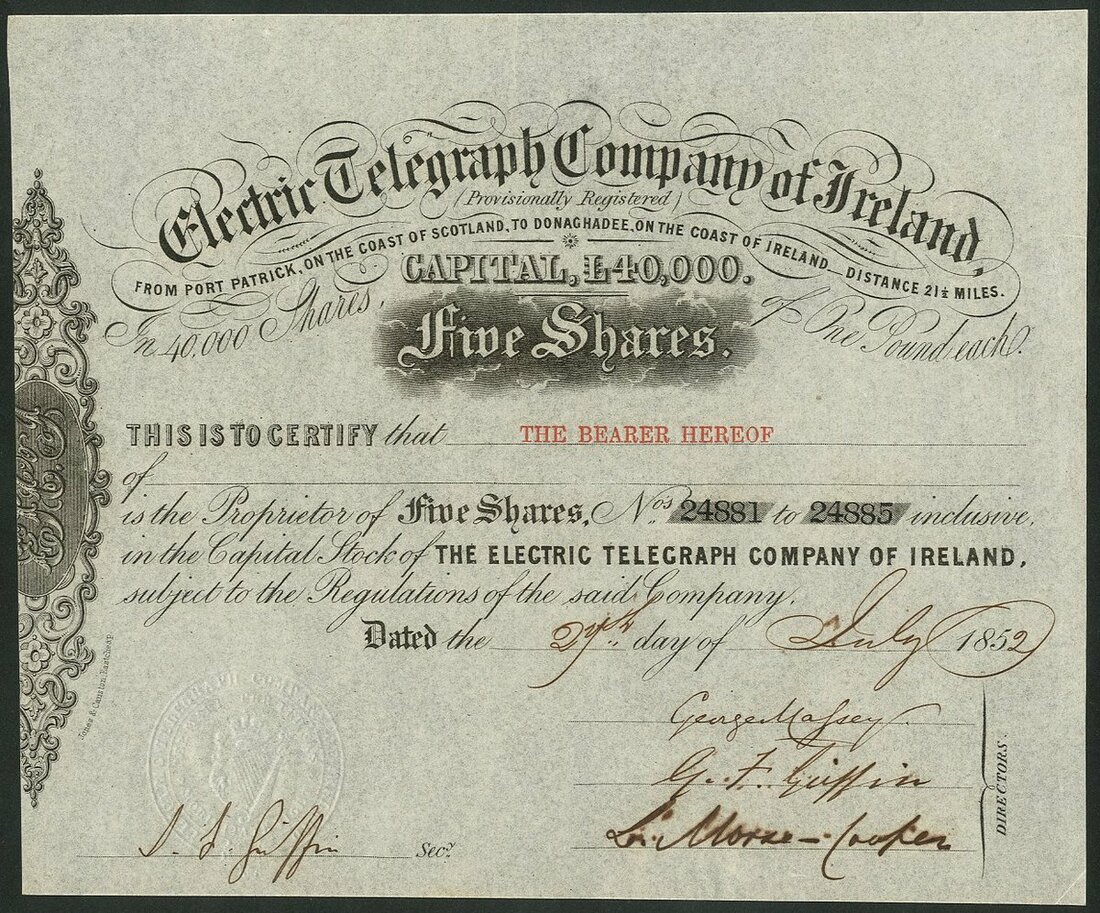 Electric Telegraph Company of Ireland,
(Provisionally Registered)
FROM PORT PATRICK, ON THE COAST OF SCOTLAND, TO DONAGHADEE, ON THE COAST OF IRELAND_ DISTANCE 21½ MILES.
CAPITAL, £40,000.
In 40,000 Shares, of One Pound each.
Five Shares.
THIS IS TO CERTIFY that THE BEARER HEREOF
of
is the Proprietor of Five Shares, Nos. 24881 to 24885 inclusive,
in the Capital Stock of THE ELECTRIC TELEGRAPH COMPANY OF IRELAND,
subject to the Regulations of the said Company.
Dated the 29th day of July 1852
George Massey
G. F. Griffin
Morse-Cooper
DIRECTORS.
Griffin Secy.
Jones & Causton, Eastcheap